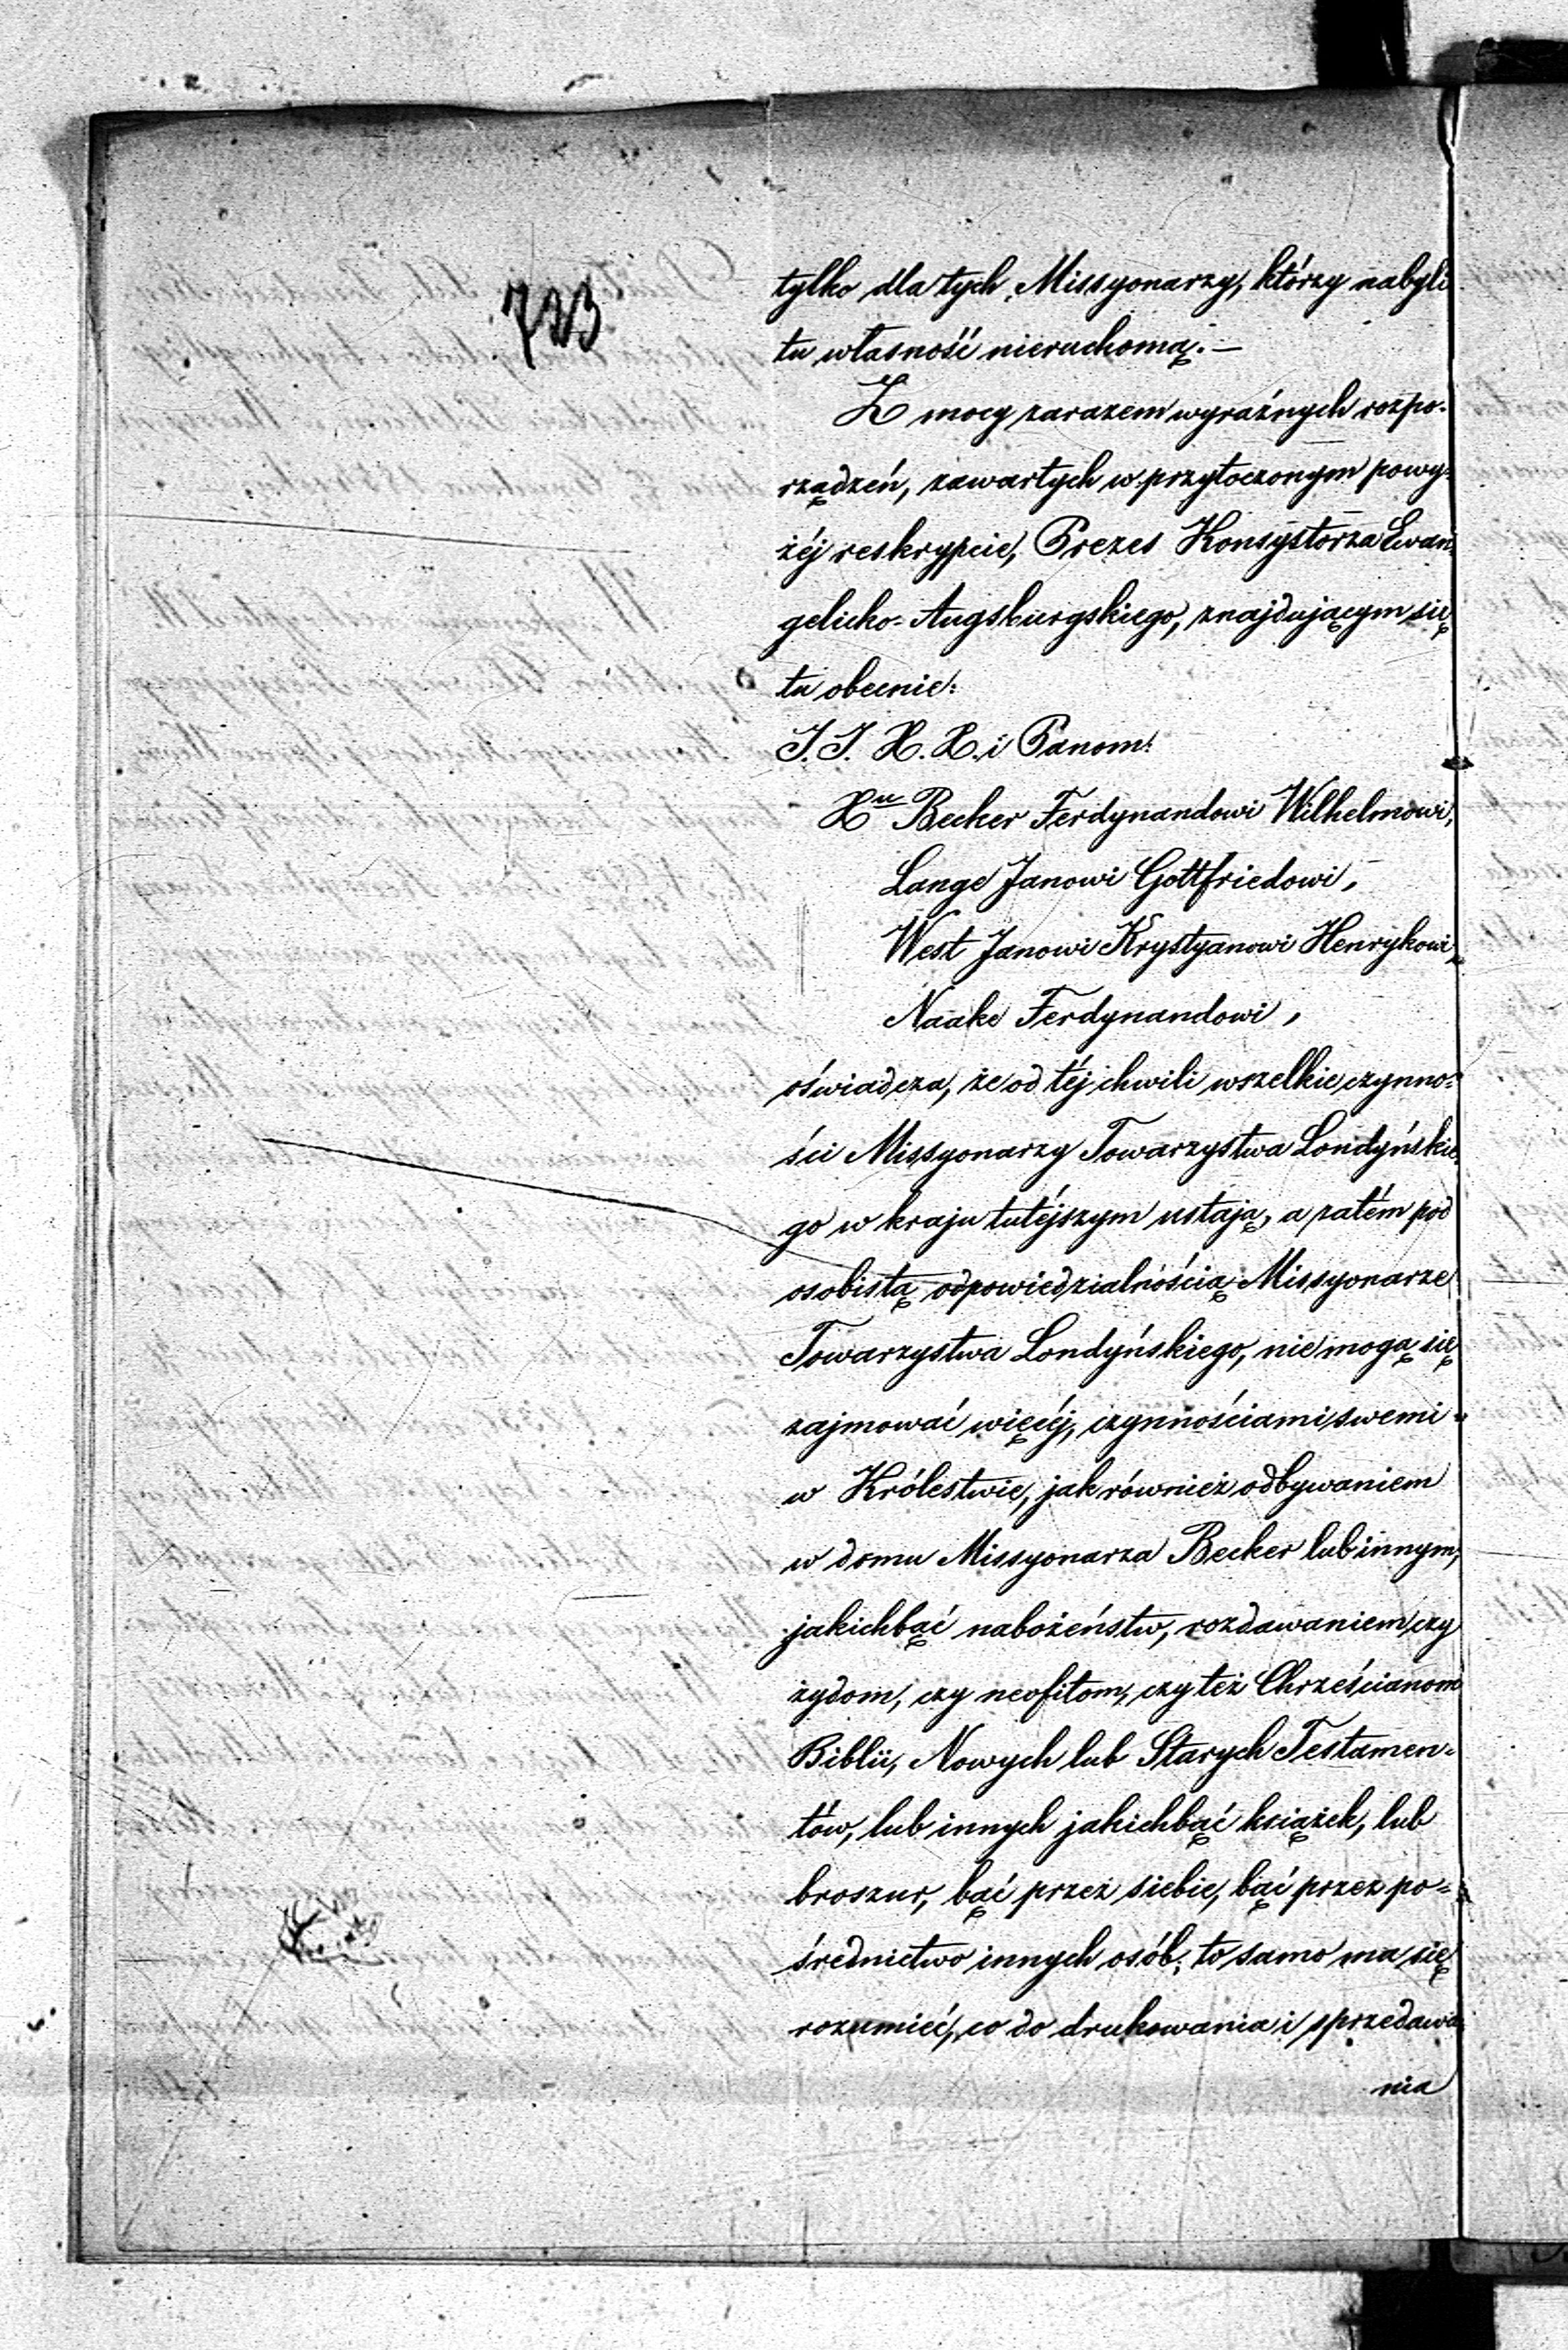 723
tylko dla tych Missyonarzy, którzy nabyli
tu własność nieruchomą. —
Z mocy zarazem wyraźnych rozpo-
rządzeń, zawartych w przytoczonym powy-
żéj reskrypcie, Prezes Konsystorza Ewan-
gelicko-Augsburgskiego, znajdującym się
tu obecnie:
J. J. X. X. i Panom:
Xu Becker Ferdynandowi Wilhelmowi,
Lange Janowi Gottfriedowi,
West Janowi Krystyanowi Henrykowi,
Naake Ferdynandowi,
oświadcza, że od téj chwili wszelkie czynno-
ści Missyonarzy Towarzystwa Londyńskie-
go w kraju tutéjszym ustają, a zatém pod
osobistą odpowiedzialnością Missyonarze
Towarzystwa Londyńskiego, nie mogą się
zajmować więcéj, czynnościami swemi
w Królestwie, jak również odbywaniem
w domu Missyonarza Becker lub innym,
jakichbąć nabożeństw, rozdawaniem czy
żydom, czy neofitom, czy też Chrześcianom
Biblii, Nowych lub Starych Testamen-
tów, lub innych jakichbąć książek, lub
broszur, bąć przez siebie, bąć przez po-
średnictwo innych osób; to samo ma się
rozumieć, co do drukowania i sprzedawa-
nia